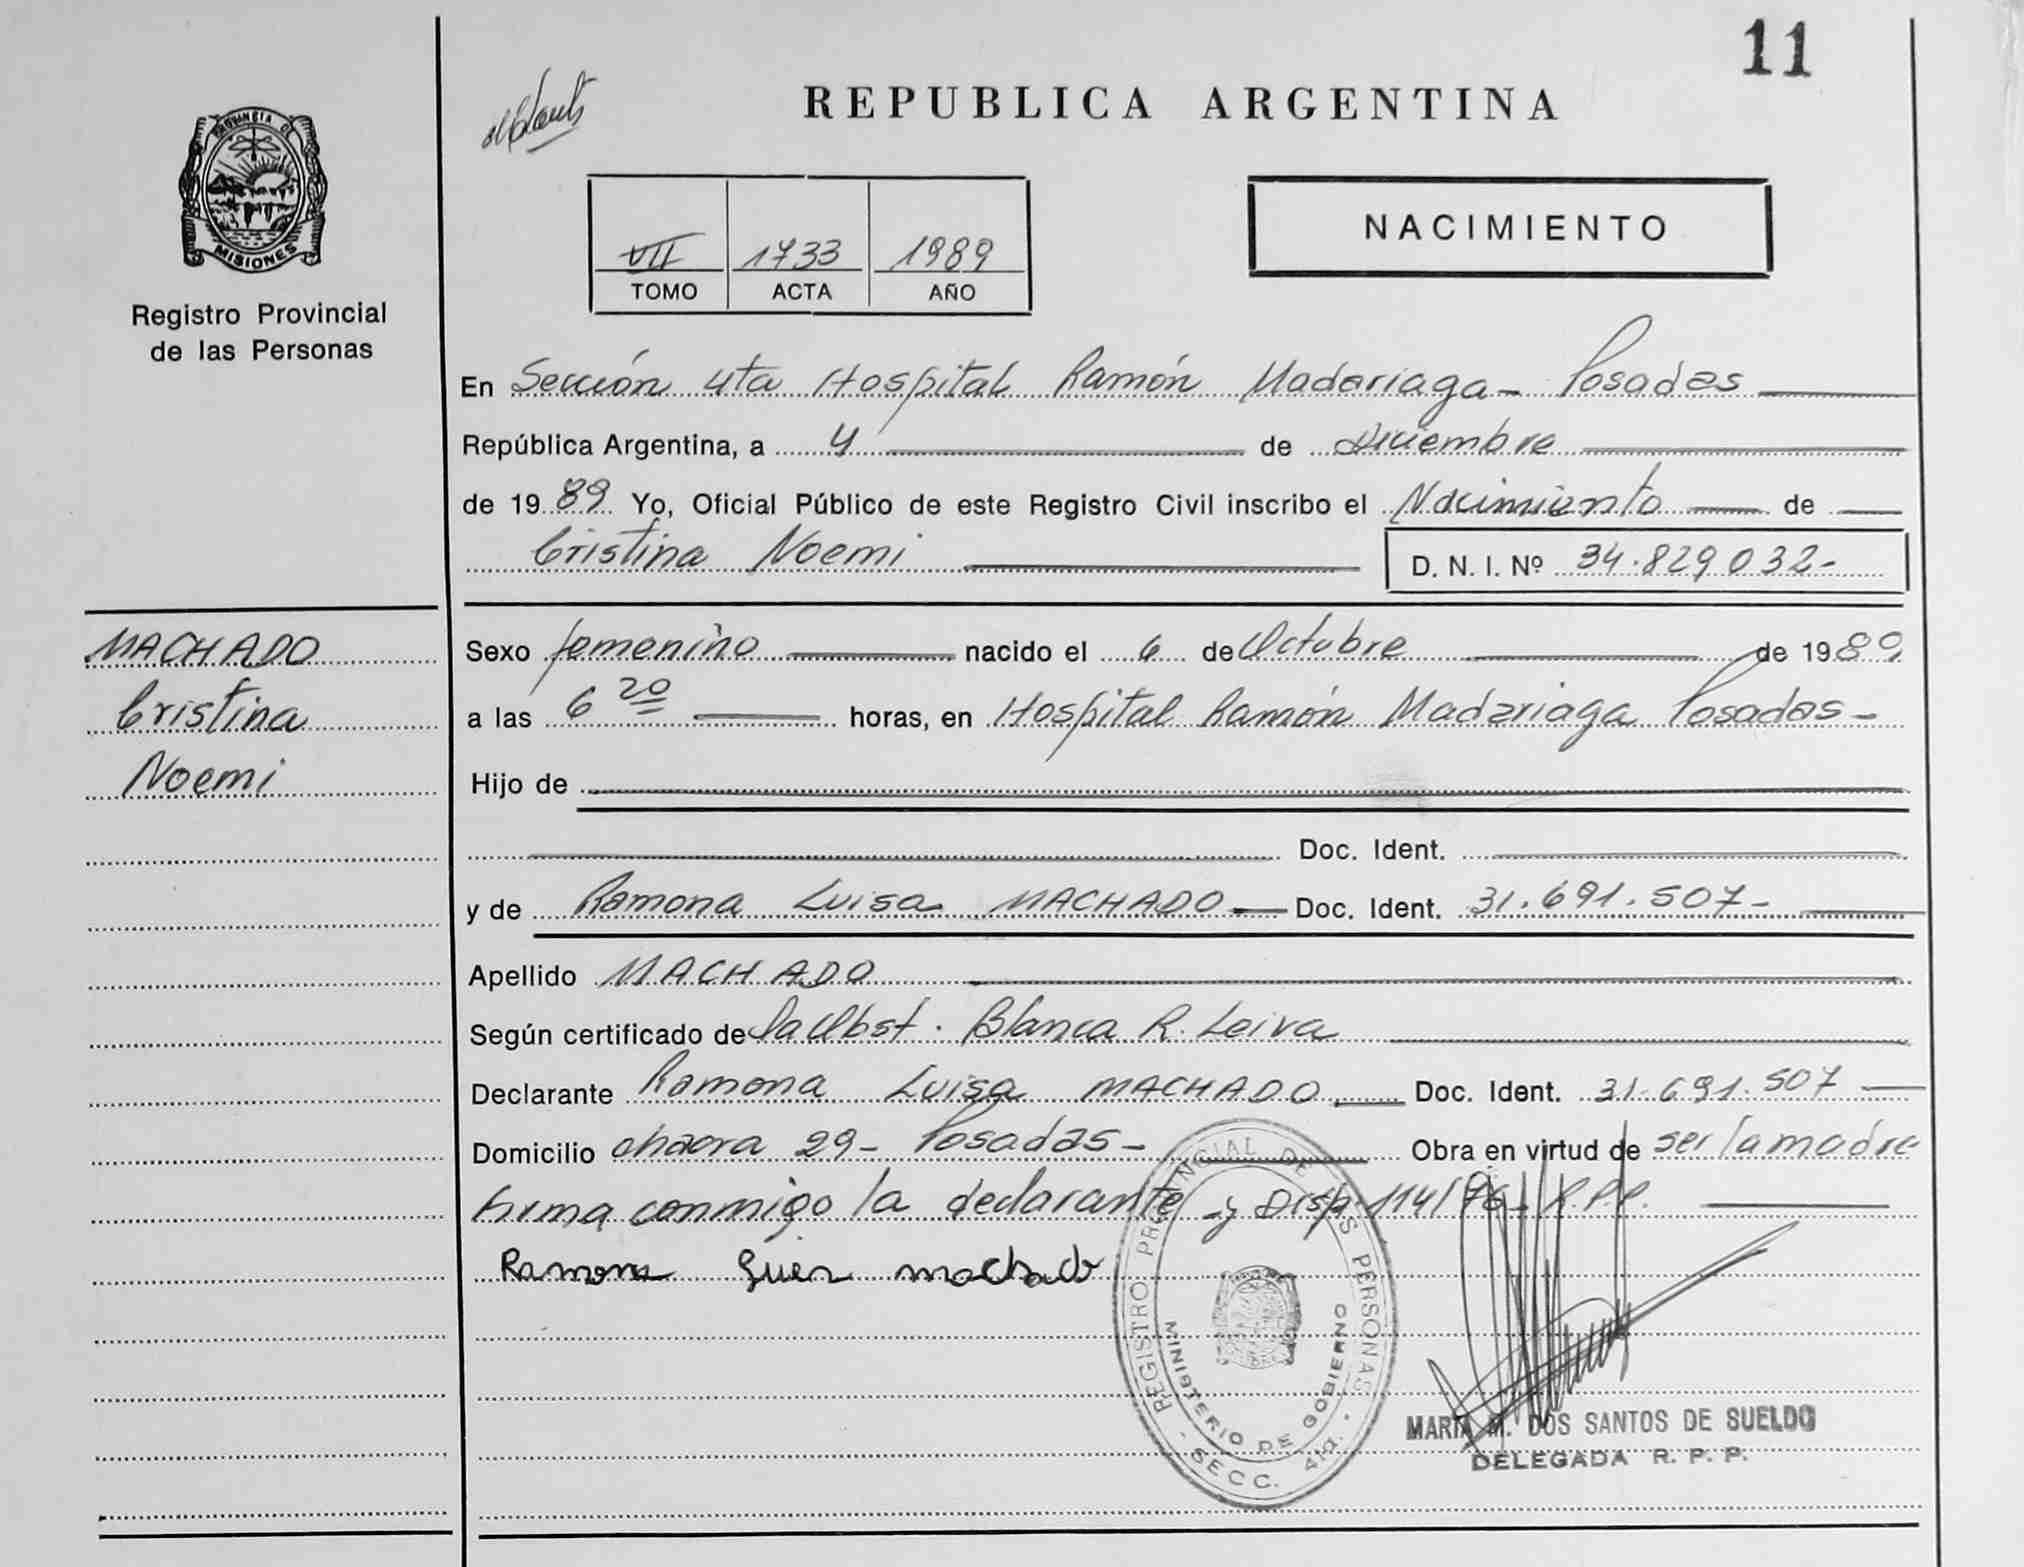 11
REPUBLICA ARGENTINA
PROVINCIA DE
MISIONES
Registro Provincial
de las Personas
VII 1733 1989
TOMO ACTA AÑO
NACIMIENTO
En Sección 4ta Hospital Ramón Madariaga - Posadas
República Argentina, a 4 de Diciembre
de 1989 Yo, Oficial Público de este Registro Civil inscribo el Nacimiento de
Cristina Noemi D. N. I. Nº 34.829032-
MACHADO
Cristina
Noemi
Sexo femenino nacido el 6 de Octubre de 1989
a las 6 20 horas, en Hospital Ramón Madariaga Posadas -
Hijo de
Doc. Ident.
y de Ramona Luisa MACHADO Doc. Ident. 31.691.507-
Apellido MACHADO
Según certificado de la Obst. Blanca R. Leiva
Declarante Ramona Luisa MACHADO Doc. Ident. 31.691.507
Domicilio chacra 29 - Posadas - Obra en virtud de ser la madre
firma conmigo la declarante y Disp 114/76 R.P.P.
Ramona machado
REGISTRO PROVINCIAL DE LAS PERSONAS
MINISTERIO DE GOBIERNO
SECC. 4ta.
MARIA M. DOS SANTOS DE SUELDO
DELEGADA R. P. P.